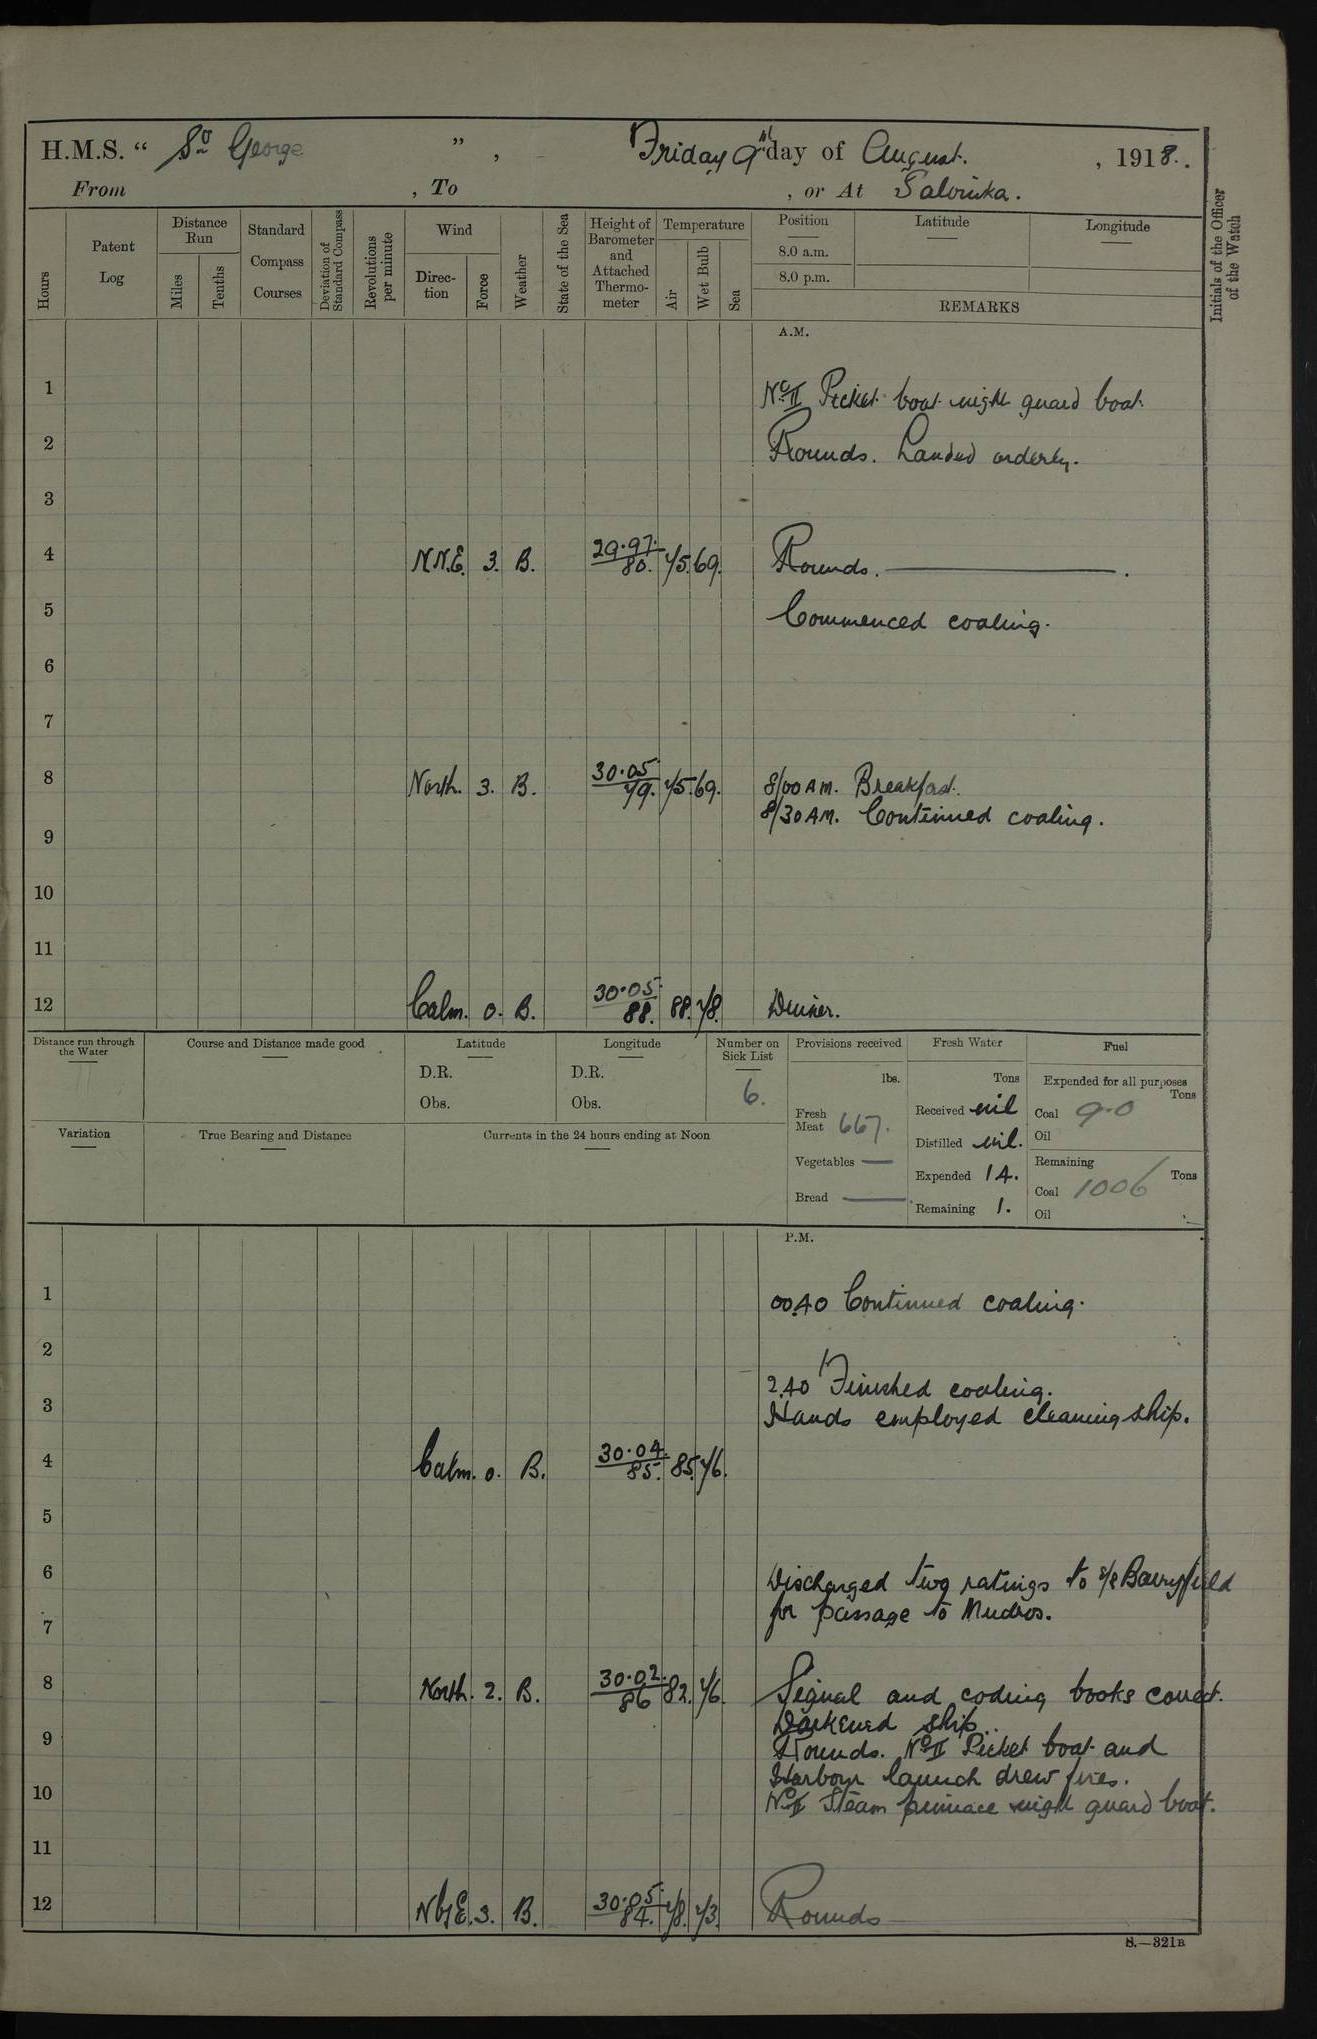 H.M.S. “ St George ” , Friday 9th day of August. , 1918.
From , To , or At Salonika.
Hours
Patent Log
Distance Run
Miles
Tenths
Standard Compass Courses
Deviation of Standard Compass
Revolutions per minute
Wind
Direc- tion
Force
Weather
State of the Sea
Height of Barometer and Attached Thermo- meter
Temperature
Air
Wet Bulb
Sea
Position
8.0 a.m.
8.0 p.m.
Latitude
Longitude
REMARKS
Initials of the Officer of the Watch
A.M.
1 No II Picket boat night guard boat.
2 Rounds. Landed orderly.
3
4 N.N.E. 3. B. 29.97. 80. 75. 69. Rounds.
5 Commenced coaling.
6
7
8 North. 3. B. 30.05 79. 75. 69. 8/00 AM. Breakfast.
8/30 AM. Continued coaling.
9
10
11
12 Calm. 0. B. 30.05. 88. 88. 78. Dinner.
Distance run through the Water
Course and Distance made good
Latitude
D.R.
Obs.
Longitude
D.R.
Obs.
Number on Sick List
6.
Provisions received
lbs.
Fresh Meat 667.
Vegetables —
Bread —
Fresh Water
Tons
Received nil
Distilled nil.
Expended 14.
Remaining 1.
Fuel
Expended for all purposes
Tons
Coal 9.0
Oil
Remaining
Tons
Coal 1006
Oil
Variation
True Bearing and Distance
Currents in the 24 hours ending at Noon
P.M.
1 00.40 Continued coaling.
2
2.40 Finished coaling.
3 Hands employed cleaning ship.
4 Calm. 0. B. 30.04. 85. 85. 76.
5
6 Discharged two ratings to s/s Barryfield
for passage to Mudros.
7
8 North. 2. B. 30.02. 86 82. 76. Signal and coding books correct.
Darkened ship.
9 Rounds. No II Picket boat and
Harbour launch drew fires.
10 No II Steam pinnace night guard boat.
11
12 NbyE. 3. B. 30.05. 84. 78. 73. Rounds
S.—321B